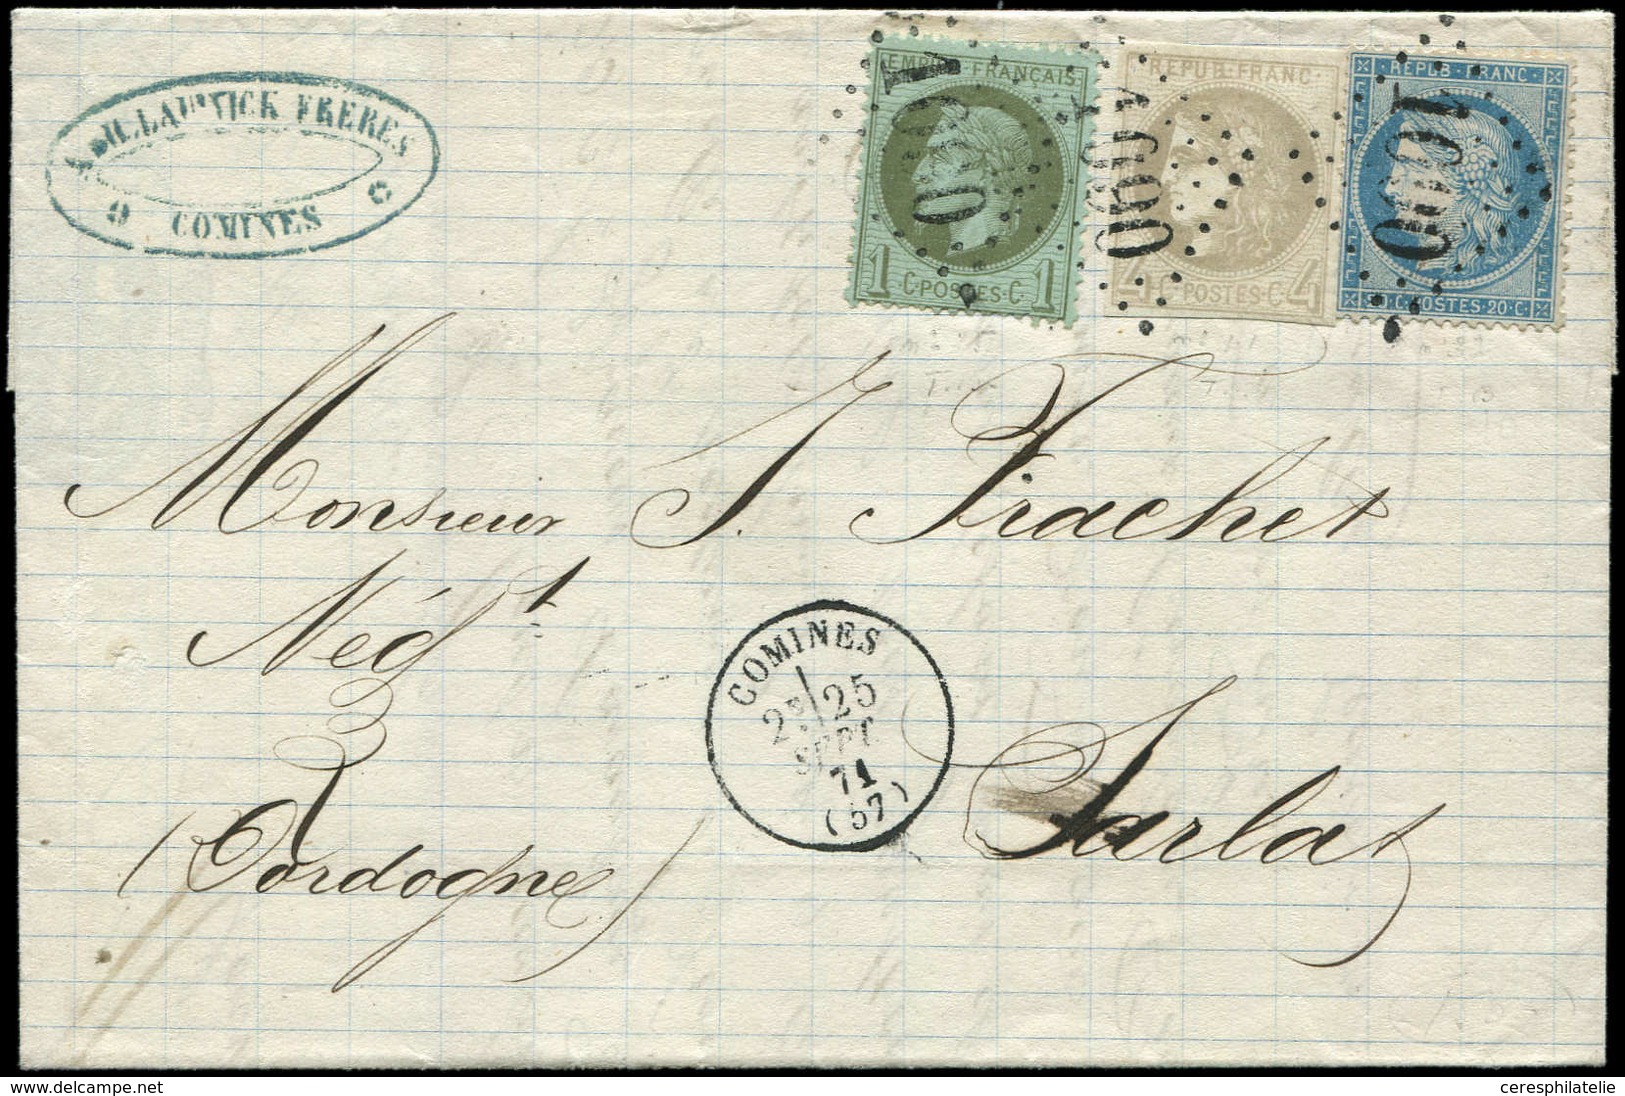 LAUWICK FRERES
COMINES
EMPIRE FRANÇAIS
1 C·POSTES·C· 1
REPUB·FRANC·
4 C·POSTES·C 4
REPUB·FRANC·
20·C·POSTES·20·C·
1090
1090
1090
Monsieur J. Frachet
Négt
Sarlat
(Dordogne)
COMINES
2E 25
SEPT
71
(57)
www.delcampe.net
ceresphilatelie